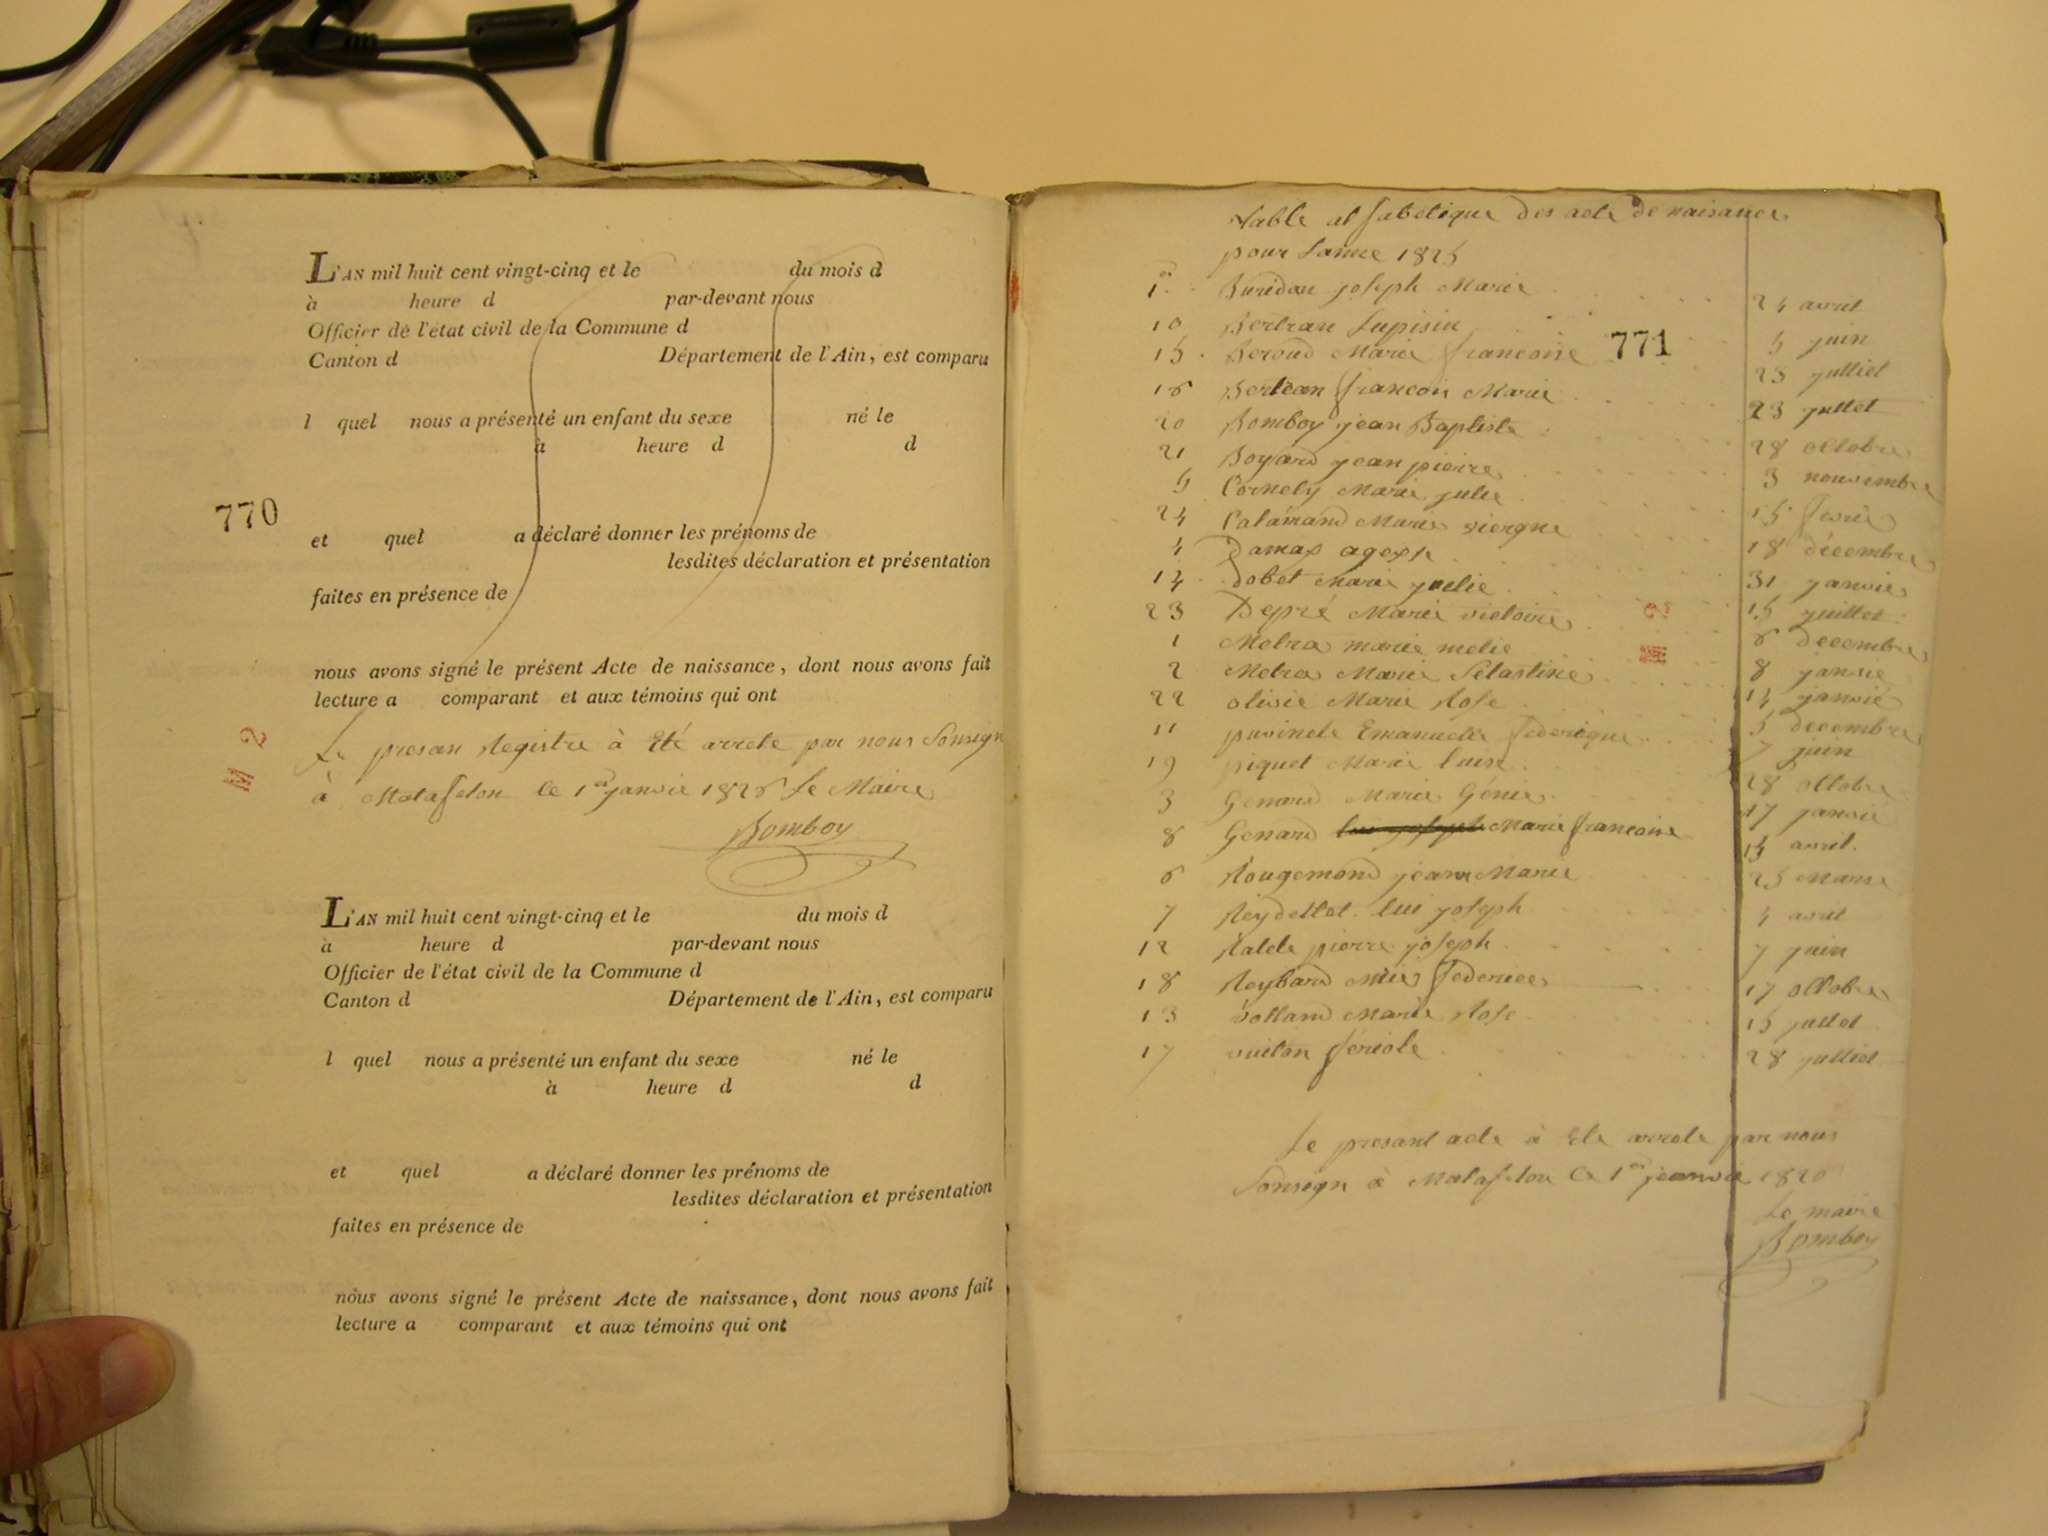 L'AN mil huit cent vingt-cinq et le du mois d
à heure d par-devant nous
Officier de l'état civil de la Commune d
Canton d Département de l'Ain, est comparu
l quel nous a présenté un enfant du sexe né le
à heure d d
770
et quel a déclaré donner les prénoms de
lesdites déclaration et présentation
faites en présence de
nous avons signé le présent Acte de naissance, dont nous avons fait
lecture a comparant et aux témoins qui ont
2
Le presan Registre à Eté arrete par nous Sonsign
à Matafelon le 1er janvie 1826 Le Maire
Bomboy
L'AN mil huit cent vingt-cinq et le du mois d
à heure d par-devant nous
Officier de l'état civil de la Commune d
Canton d Département de l'Ain, est comparu
l quel nous a présenté un enfant du sexe né le
à heure d d
et quel a déclaré donner les prénoms de
lesdites déclaration et présentation
faites en présence de
nous avons signé le présent Acte de naissance, dont nous avons fait
lecture a comparant et aux témoins qui ont
table alfabetique des acte de naisance
pour Lanne 1825
Buridan joseph Marie 24 avril
10 Bertran Lupisin 5 juin
771
15 Beroud Marie francoise 23 julliet
16 Bertean francois Marie 23 jullet
20 Bomboy jean Baptiste 28 octobre
21 Boyard jean pierre 3 nouvembre
5 Cornely Marie julie 15 fevrie
24 Calamand Marie viergne 18 décembre
4 Damas 31 janvie
14 Dobet Marie juelie 15 juillet
23 Depré Marie victoire 6 decembre
1 Metra marie melie 8 janvie
2 Metra Marie Selastine 14 janvié
22 olivie Marie Rose 5 decembre
11 Emanuele federique 7 juin
19 piquet Marie luise 28 octobre
3 Genard Marie Génie 17 janvié
8 Genard Marie francoise 14 avril
6 Rougemond jeane Marie 25 Marse
7 Reydellet lui joseph 4 avril
12 Ratele pierre joseph 7 juin
18 Reybard 17 octobre
13 Volland Marie Rose 15 jullet
17 vuitan feriole 28 julliet
Le presant acte à Ete arrete par nous
Sonsign à Matafelon Ce 1er jeanvie 1826
Le maire
Bomboy